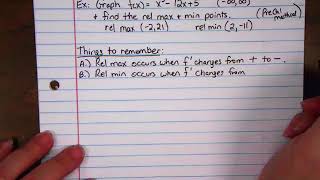 Ex: Graph f(x) = x³ - 12x + 5 (-∞,∞)
+ find the rel max + min points. (PreCal method)
rel max (-2,21) rel min (2,-11)
Things to remember:
A.) Rel max occurs when f' changes from + to -.
B.) Rel min occurs when f' changes from